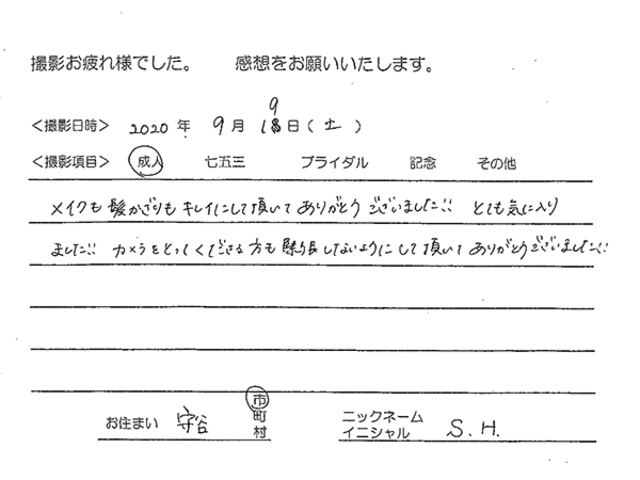 撮影お疲れ様でした。 感想をお願いいたします。
<撮影日時> 2020年 9月 19日(土)
<撮影項目> 成人 七五三 ブライダル 記念 その他
メイクも 髪かざりも キレイにして頂いて ありがとう ございました!! とても気に入り
ました!! カメラをとってくださる方も 緊張しないようにして頂いて ありがとうございました!!
お住まい 守谷 市 町 村
ニックネーム イニシャル S.H.